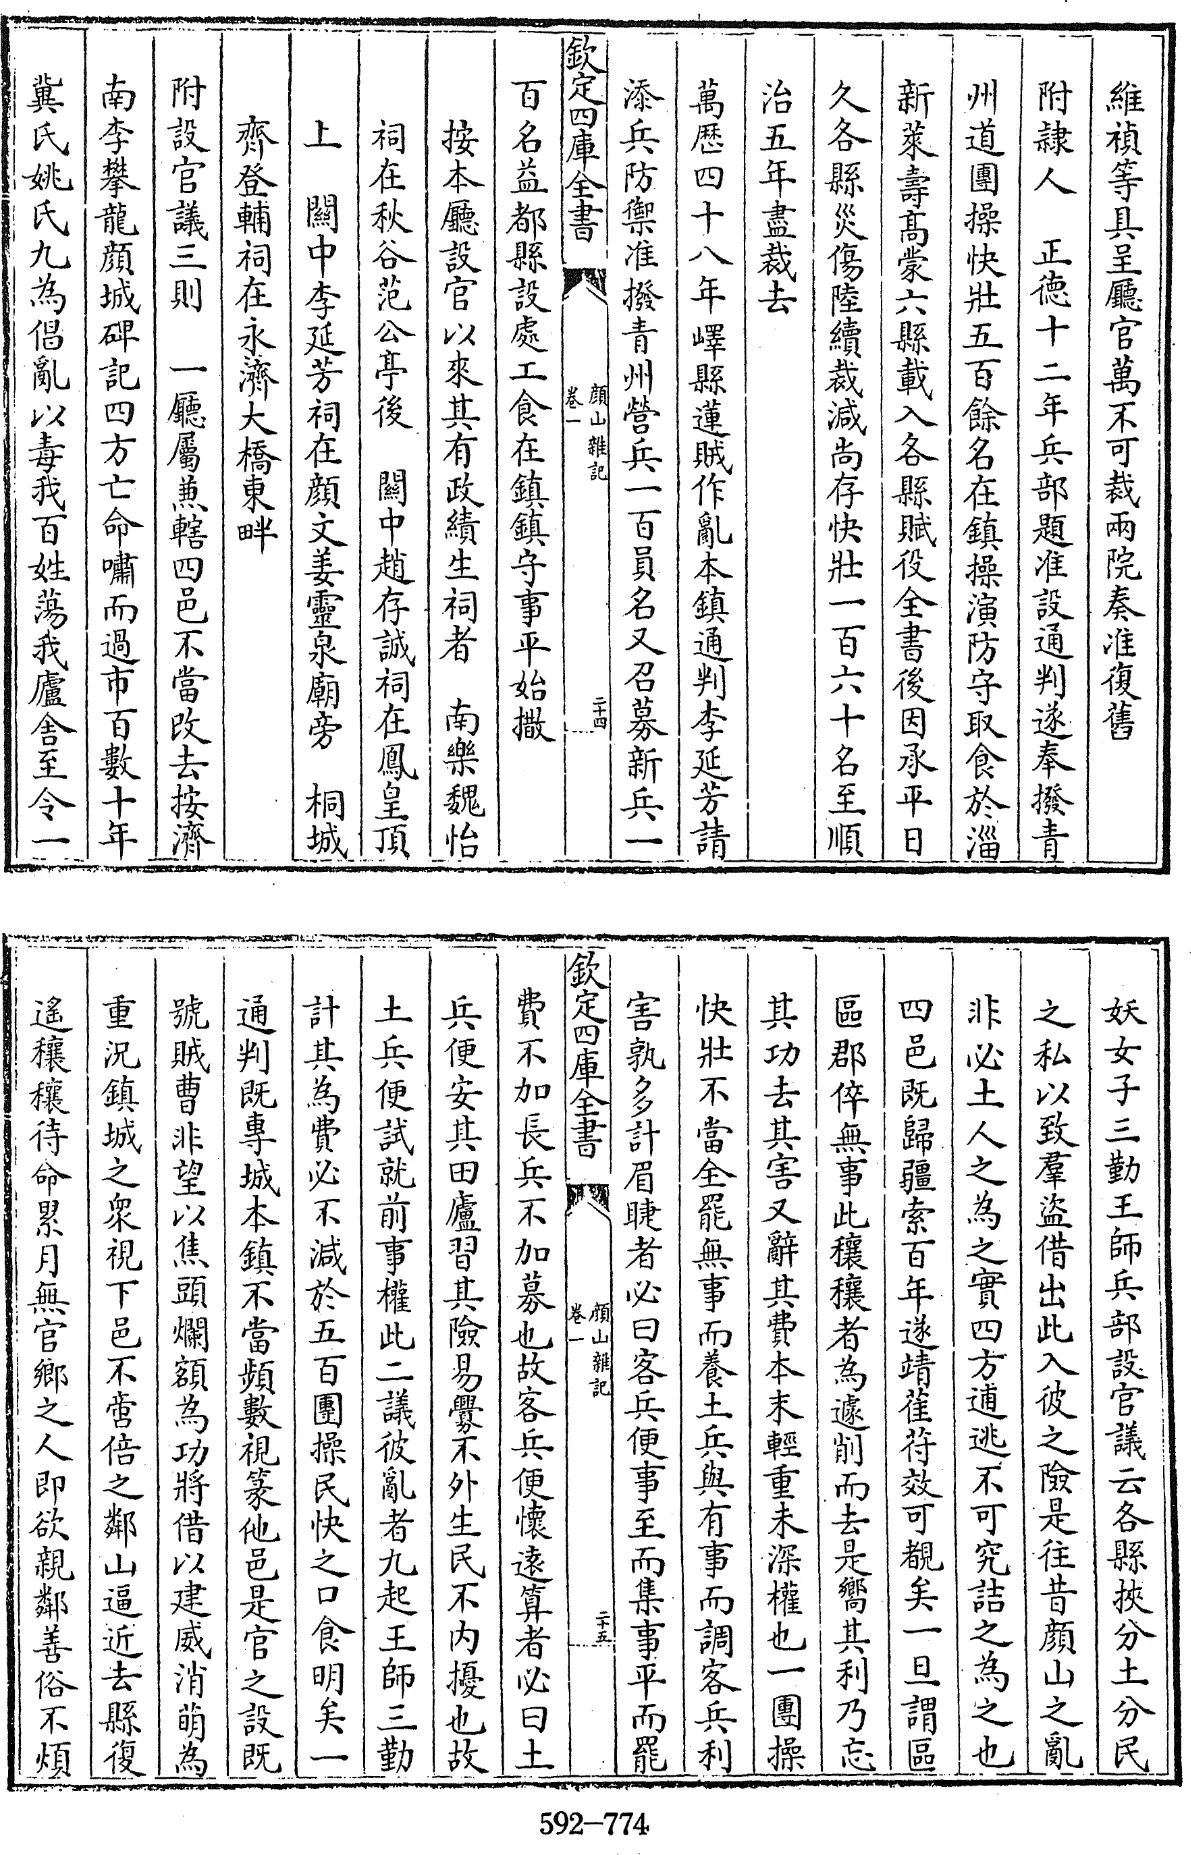 維禎等具呈廳官萬不可裁兩院奏准復舊
附隷人　正德十二年兵部題准設通判遂奉撥青
州道團操快壯五百餘名在鎮操演防守取食於淄
新萊壽髙蒙六縣載入各縣賦役全書後因承平日
久各縣災傷陸續裁減尚存快壯一百六十名至順
治五年盡裁去
萬歷四十八年嶧縣蓮賊作亂本鎮通判李延芳請
添兵防禦准撥青州營兵一百員名又召募新兵一
欽定四庫全書　顔山雜記　卷一　二十四
百名益都縣設處工食在鎮鎮守事平始撤
按本廳設官以來其有政績生祠者　南樂魏怡
祠在秋谷范公亭後　關中趙存誠祠在鳳皇頂
上　關中李延芳祠在顔文姜靈泉廟旁　桐城
齊登輔祠在永濟大橋東畔
附設官議三則　一廳屬兼轄四邑不當改去按濟
南李攀龍顔城碑記四方亡命嘯而過市百數十年
冀氏姚氏九為倡亂以毒我百姓蕩我廬舎至令一
妖女子三勤王師兵部設官議云各縣挾分土分民
之私以致羣盜借出此入彼之險是往昔顔山之亂
非必土人之為之實四方逋逃不可究詰之為之也
四邑既歸疆索百年遂靖萑苻效可覩矣一旦謂區
區郡倅無事此穰穰者為遽削而去是嚮其利乃忘
其功去其害又辭其費本末輕重未深權也一團操
快壯不當全罷無事而養土兵與有事而調客兵利
害孰多計眉睫者必曰客兵便事至而集事平而罷
欽定四庫全書　顔山雜記　卷一　二十五
費不加長兵不加募也故客兵便懷遠算者必曰土
兵便安其田廬習其險易釁不外生民不内擾也故
土兵便試就前事權此二議彼亂者九起王師三勤
計其為費必不減於五百團操民快之口食明矣一
通判既專城本鎮不當頻數視篆他邑是官之設既
號賊曹非望以焦頭爛額為功將借以建威消萌為
重況鎮城之衆視下邑不啻倍之鄰山逼近去縣復
遙穰穰待命累月無官鄉之人即欲親鄰善俗不煩
592-774